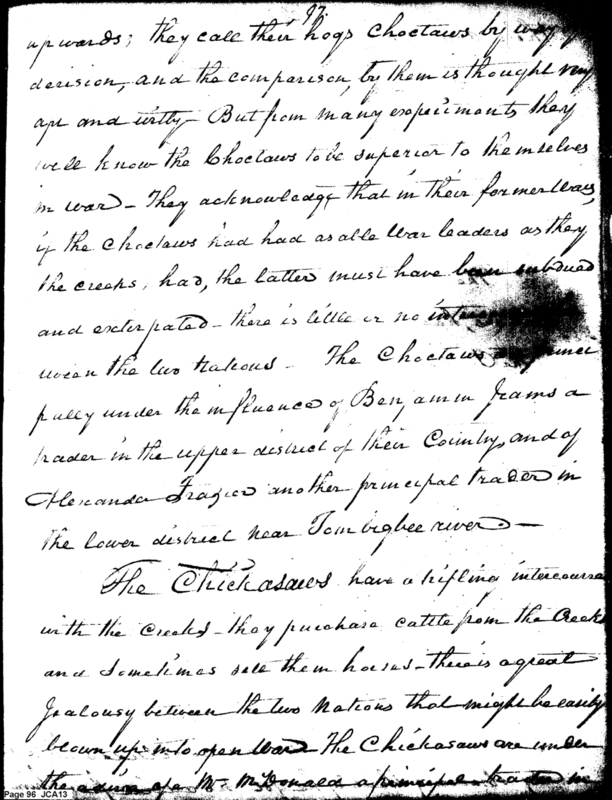 97.
upwards; they call their hogs Choctaws by way
derision, and the comparison, by them is thought very
apt and witty - But from many experiments they
well know the Choctaws to be superior to themselves
in war - They acknowledge that in their former Wars,
if the Choctaws had had as able War leaders as they
the creeks, had, the latter must have been subdued
and exterpated - there is little or no
tween the two Nations - The Choctaws are princi
pally under the influence of Benjamin Jrams a
trader in the upper district of their Country, and of
Alexander Frazier another principal trader in
the lower district near Tombigbee river. -
The Chickasaws have a trifling intercourse
with the Creeks - they purchase cattle from the Creeks
and Sometimes sell them horses - there is a great
Jealousy between the two Nations that might be easily
blown up into open War The Chickasaws are under
the advice of a Mr McDonald a principal trader in
Page 96 JCA13